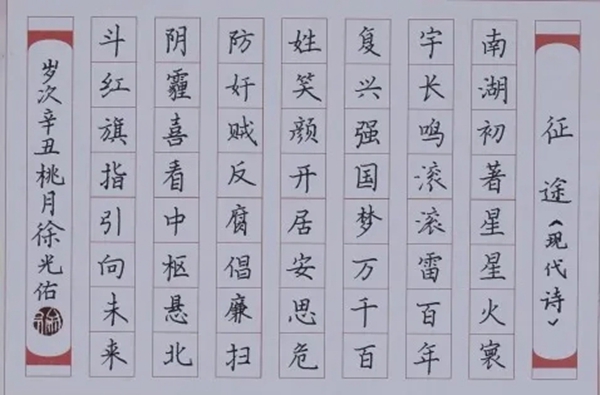 征途《现代诗》
南湖初著星星火寰
宇长鸣滚滚雷百年
复兴强国梦万千百
姓笑颜开居安思危
防奸贼反腐倡廉扫
阴霾喜看中枢悬北
斗红旗指引向未来
岁次辛丑桃月徐光佑